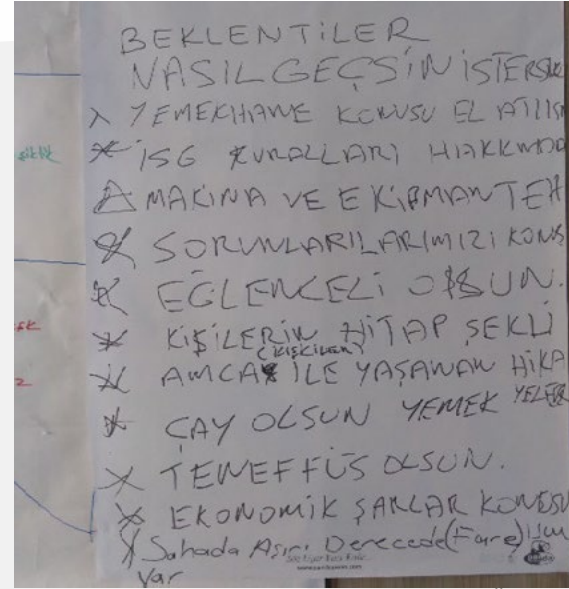 BEKLENTİLER
NASIL GEÇSİN İSTERSİN
YEMEKHANE KONUSU EL ATILSI
İSG KURALLARI HAKKINDA
MAKİNA VE EKİPMAN TEH
SORUNLARILARIMIZI KONUŞ
EĞLENCELİ OLSUN.
KİŞİLERİN HİTAP ŞEKLİ
(İLİŞKİLER)
AMCA İLE YAŞANAN HİKA
ÇAY OLSUN YEMEK
TENEFFÜS OLSUN.
EKONOMİK ŞARLAR KONUSU
Sahada Aşırı Derecede (Fare)
Var